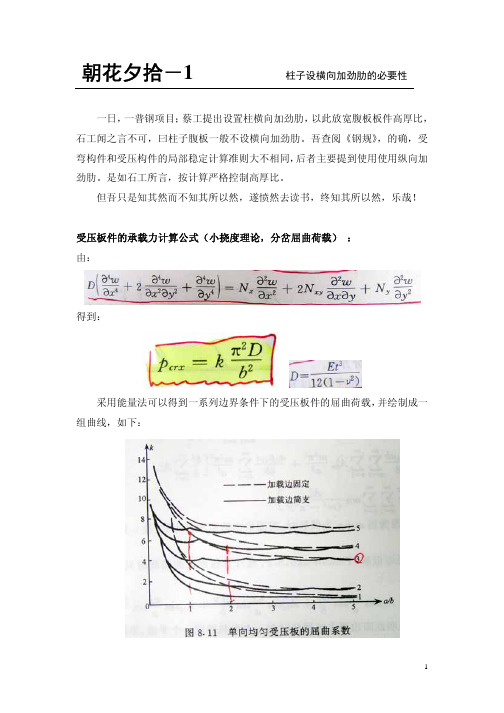 朝花夕拾－1 柱子设横向加劲肋的必要性
一日，一普钢项目；蔡工提出设置柱横向加劲肋，以此放宽腹板板件高厚比，
石工闻之言不可，曰柱子腹板一般不设横向加劲肋。吾查阅《钢规》，的确，受
弯构件和受压构件的局部稳定计算准则大不相同，后者主要提到使用使用纵向加
劲肋。是如石工所言，按计算严格控制高厚比。
但吾只是知其然而不知其所以然，遂愤然去读书，终知其所以然，乐哉！
受压板件的承载力计算公式（小挠度理论，分岔屈曲荷载）：
由：
D(∂⁴w/∂x⁴ + 2 ∂⁴w/∂x²∂y² + ∂⁴w/∂y⁴) = Nₓ ∂²w/∂x² + 2Nₓᵧ ∂²w/∂x∂y + Nᵧ ∂²w/∂y²
得到：
p_crx = k π²D/b² D= Et³/12(1−ν²)
采用能量法可以得到一系列边界条件下的受压板件的屈曲荷载，并绘制成一
组曲线，如下：
k
14
12
10
8
6
4
2
0 1 2 3 4 5 a/b
加载边固定
加载边简支
5
4
2
1
图 8.11 单向均匀受压板的屈曲系数
1